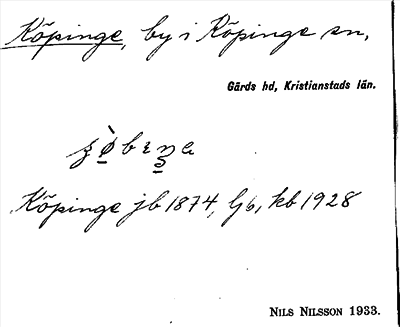 Köpinge, by i Köpinge sn,
Gärds hd, Kristianstads län.
Köpinge jb 1874, kb 1928
NILS NILSSON 1933.